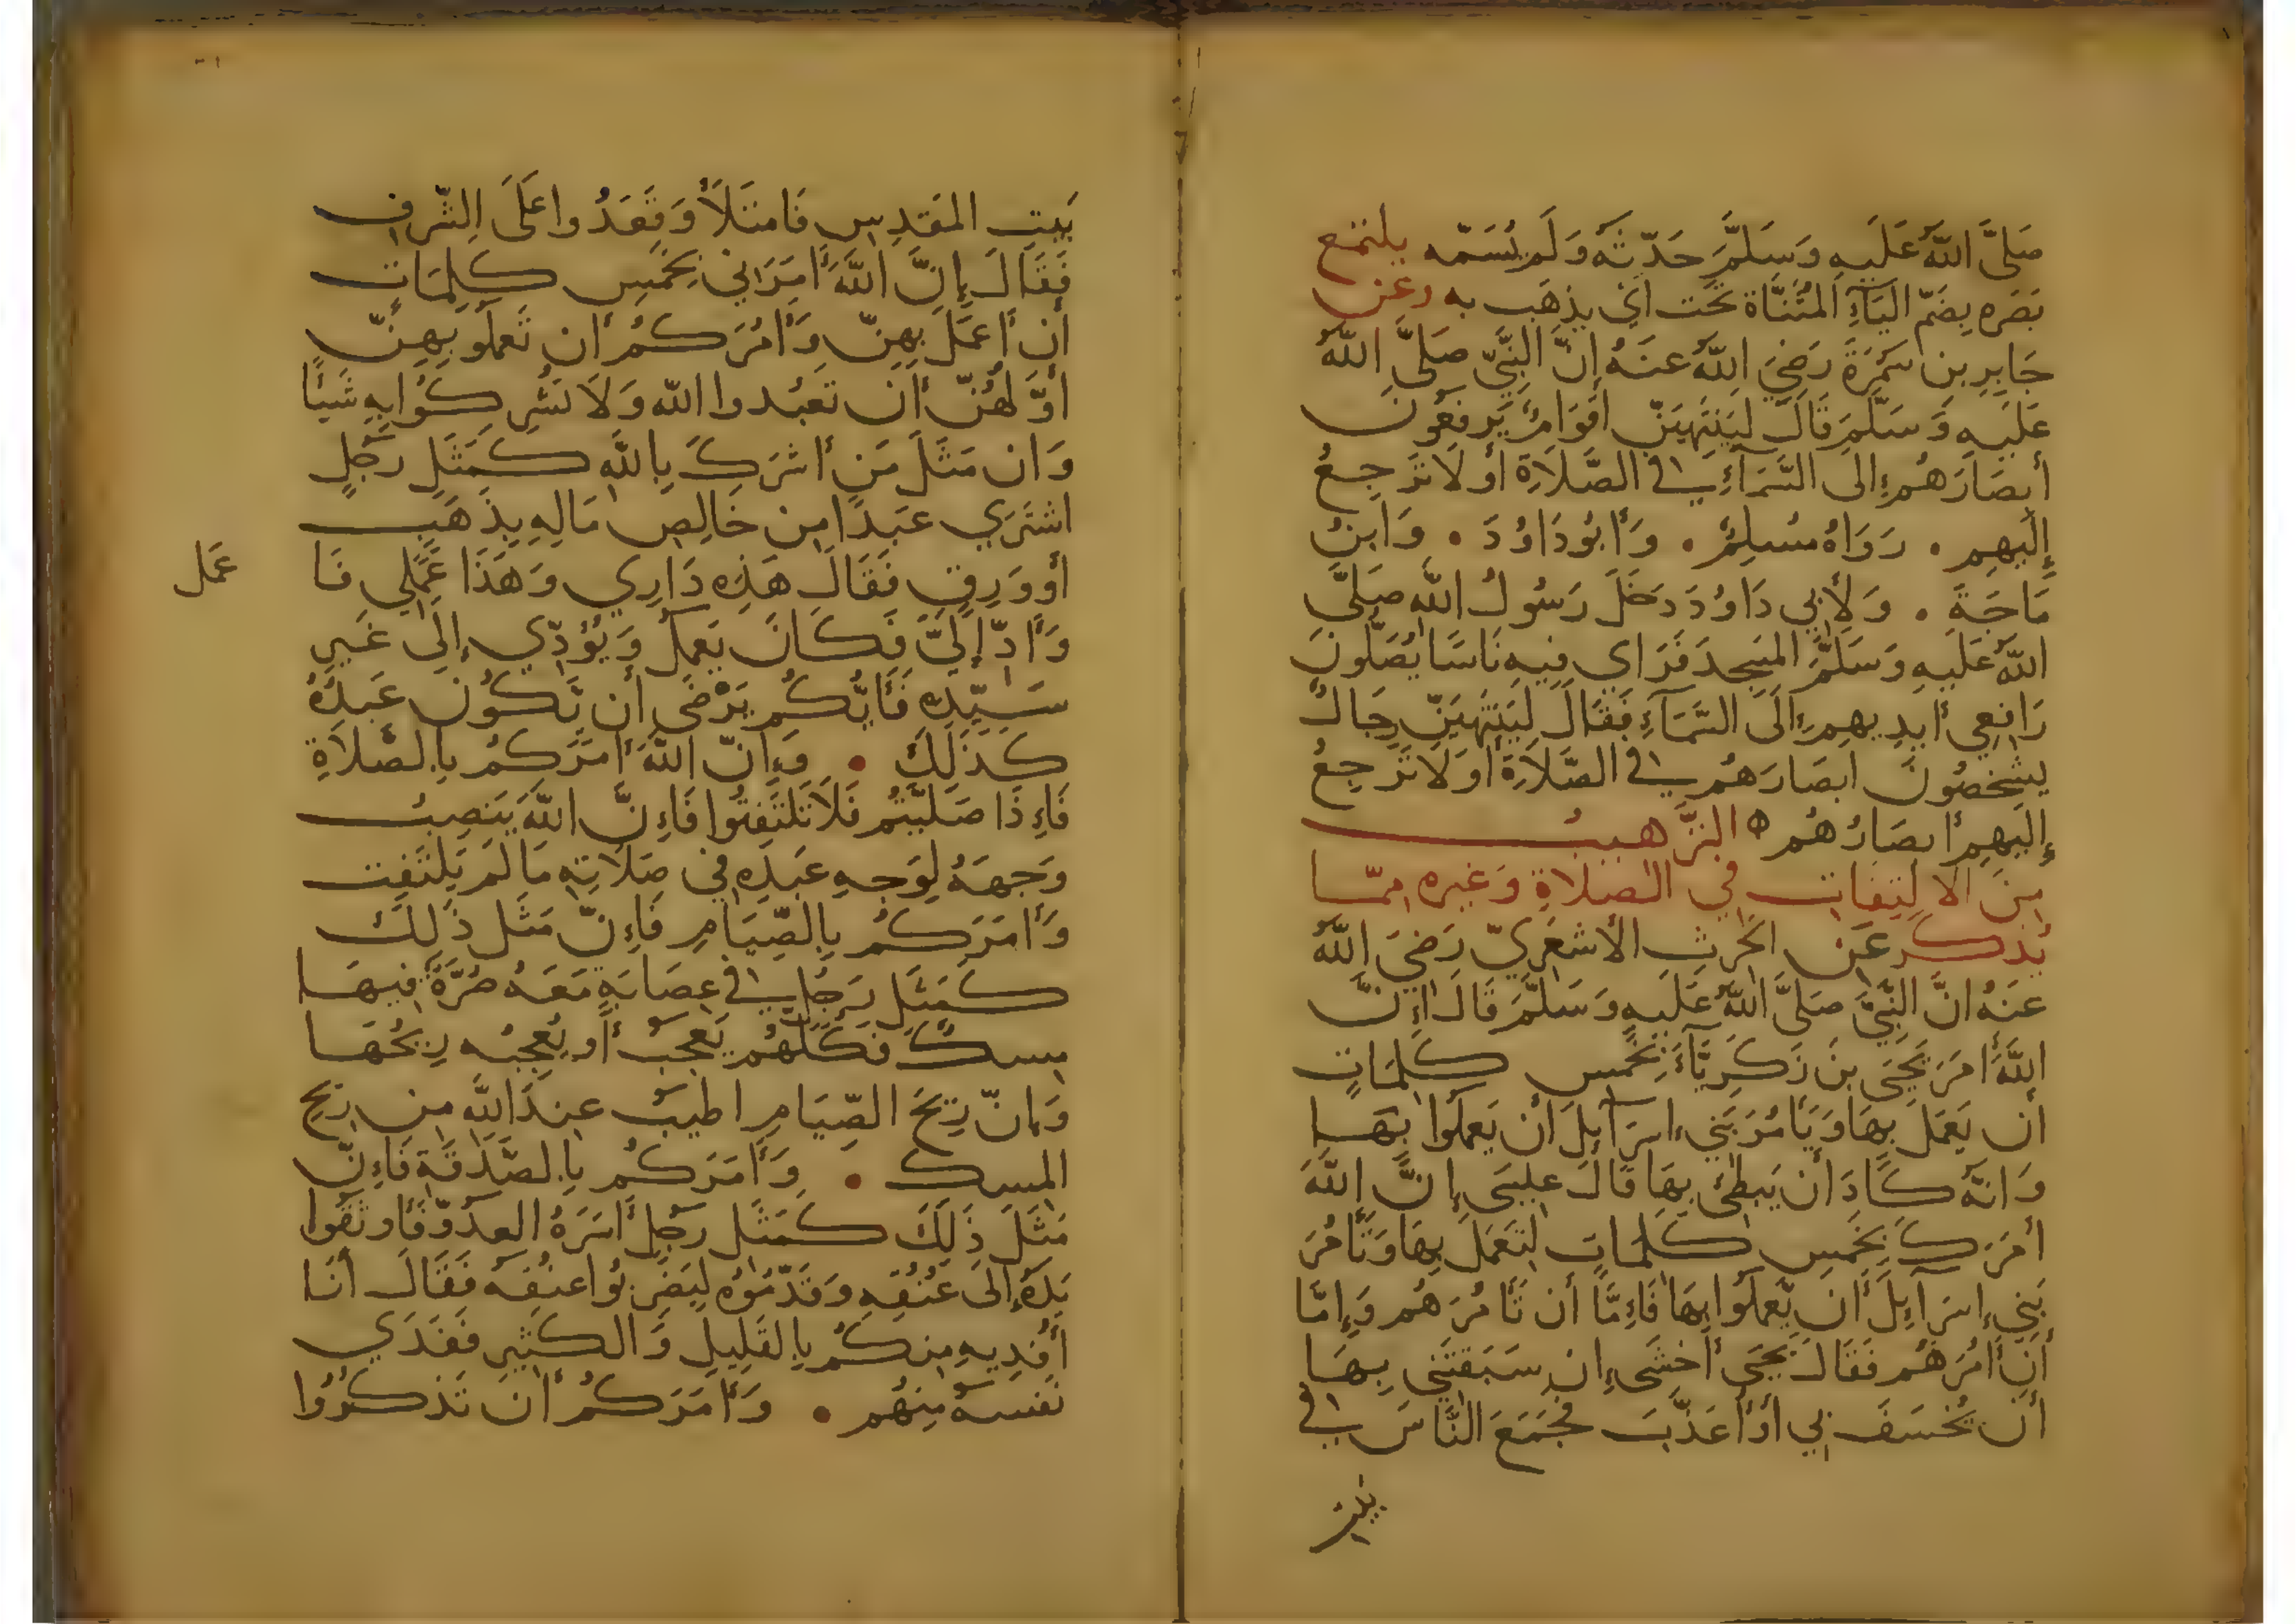 صَلَّى اللَّهُ عَلَيهِ وَسَلَّمَ حَدَّثَهُ وَلَم يُسَمّه يلتمع
بَصَره بِضَمّ اليَآءِ المُثَنَّاة تحت اي يذهَب به وعن
جَابِرِ بنِ سَمُرَةَ رَضِيَ اللَّهُ عنَهُ انَّ النَّبِيّ صَلَّى اللَّهُ
عَلَيهِ وَسَلَّمَ قَالَ لَيَنتَهِيَنّ اقوَامٌ يَرفَعُونَ
أبصَارَهُم إلَى السَّمَآءِ في الصَّلَاةِ أو لَا تَرجِعُ
إلَيهِم . رَوَاهُ مُسلِمٌ . وَأبُو دَاوُدَ . وَابنُ
مَاجَةَ . وَلأبِي دَاوُدَ دَخَلَ رَسُولُ اللَّهِ صَلَّى
اللَّهُ عَلَيهِ وَسَلَّمَ المَسجِدَ فَرَاى فِيهِ نَاسًا يُصَلُّونَ
رَافِعِي أيدِيهِم إلَى السَّمَآءِ فَقَالَ لَيَنتَهِيَنّ رِجَالٌ
يشخصُونَ ابصَارَهُم في الصَّلَاةِ أو لَا تَرجِعُ
إلَيهِم أبصَارُهُم ه الترهيبُ
مِنَ الالتِفَاتِ في الصلاةِ وَغيره ممّا
يُذكر عَن الحرثِ الأشعَرِيّ رَضِيَ اللَّهُ
عنَهُ انَّ النَّبِيَّ صَلَّى اللَّهُ عَلَيهِ وَسَلَّمَ قَالَ إنَّ
اللَّهَ أمَرَ يَحيَى بنَ زَكَرِيَّآءَ بِخَمسِ كَلِمَاتٍ
أن يَعمَلَ بِهَا وَيَأمُرَ بَنِي إسرَآئِلَ أن يَعمَلُوا بِهَا
وَانّهُ كَادَ أن يُبطِئ بِهَا قَالَ عِيسَى إنَّ اللَّهَ
أمَرَكَ بِخَمسِ كَلِمَاتٍ لِتَعمَلَ بِهَا وَتَأمُرَ
بَنِي إسرَآئِلَ أن يَعمَلُوا بِهَا فَإمَّا أن تَأمُرَهُم وَإمَّا
أن آمُرَهُم فَقَالَ يَحيَى أخشَى إن سَبَقتَنِي بِهَا
أن يُخسَفَ بِي أو أعَذَّبَ فجَمَعَ النَّاسَ في
بيت
بَيتِ المَقدِسِ فَامتَلَأ وَقَعَدُوا عَلَى الشّرفِ
فَقَالَ إنَّ اللَّهَ أمَرَنِي بِخَمسِ كَلِمَاتٍ
أن أعمَلَ بِهِنّ وَآمُرَكُم أن تَعمَلُو بِهِنّ
أوَّلهُنّ أن تَعبُدوا الله وَلَا تُشرِكُوا بِهِ شَيًا
وَان مَثَلَ مَن أشرَكَ بِاللَّهِ كَمَثَلِ رَجُلٍ
اشتَرَي عَبدًا مِن خَالِصِ مَالِهِ بِذَهَبٍ
أو وَرِقٍ فَقَالَ هَذِه دَارِي وَهَذَا عَمَلِي فَا
عَمل
وَأدّ إلَيَّ فَكَانَ يَعمَلُ وَيُؤدّي إلَى غَيرِ
سَيِّدِهِ فَأيُّكُم يَرْضَى أن يَكُون عَبدُهُ
كَذَلِكَ . وَإنّ اللَّهَ أمَرَكُم بِالصّلَاةِ
فَإذَا صَلَّيتُم فَلَا تَلتَفِتُوا فَإنَّ اللَّهَ يَنصِبُ
وَجهَهُ لِوَجهِ عَبدِهِ في صَلَاتِهِ مَا لَم يَلتَفِت
وَأمَرَكُم بِالصّيَامِ فَإنّ مَثَل ذَلِكَ
كَمَثَلِ رَجُلٍ في عِصَابَةٍ مَعَهُ صُرَّةٌ فِيهَا
مِسكٌ فَكُلّهُم يَعجَبُ أو يُعجِبُه رِيحُهَا
وَإنّ رِيحَ الصِّيَامِ اطيَبُ عِندَ اللَّهِ مِن ريحِ
المِسك . وَأمَرَكُم بِالصَّدَقَةِ فَإنّ
مَثَلَ ذَلِكَ كَمَثَلِ رَجُلٍ أسَرَهُ العَدُوّ فَأوثَقُوا
يَدَهُ إلَى عُنُقِهِ وَقَدّمُوُه لِيَضرِبُوا عنُقَهُ فَقَالَ أنَا
أفدِيهِ مِنكُم بِالقَلِيلِ وَالكَثِيرِ فَفَدَي
نَفسَهُ مِنهُم . وَأمَرَكُم أن تَذكُرُوا